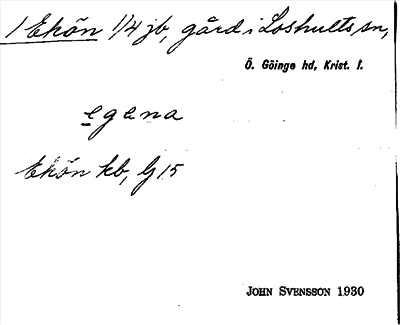 1 Ekön 1/4 jb, gård i Loshults sn,
Ö. Göinge hd, Krist. l.
egena
Ekön kb, G 15
JOHN SVENSSON 1930